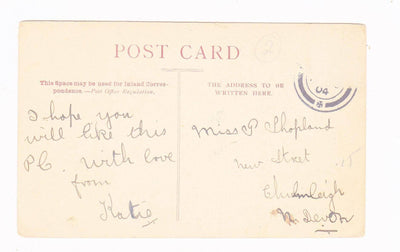 2
POST CARD
This Space may be used for Inland Corres-
pondence.—Post Office Regulation.
THE ADDRESS TO BE
WRITTEN HERE.
04
I hope you
will like this
P.C. With love
from
Katie
Miss P Shopland
New Street 15
Chulmleigh
N. Devon